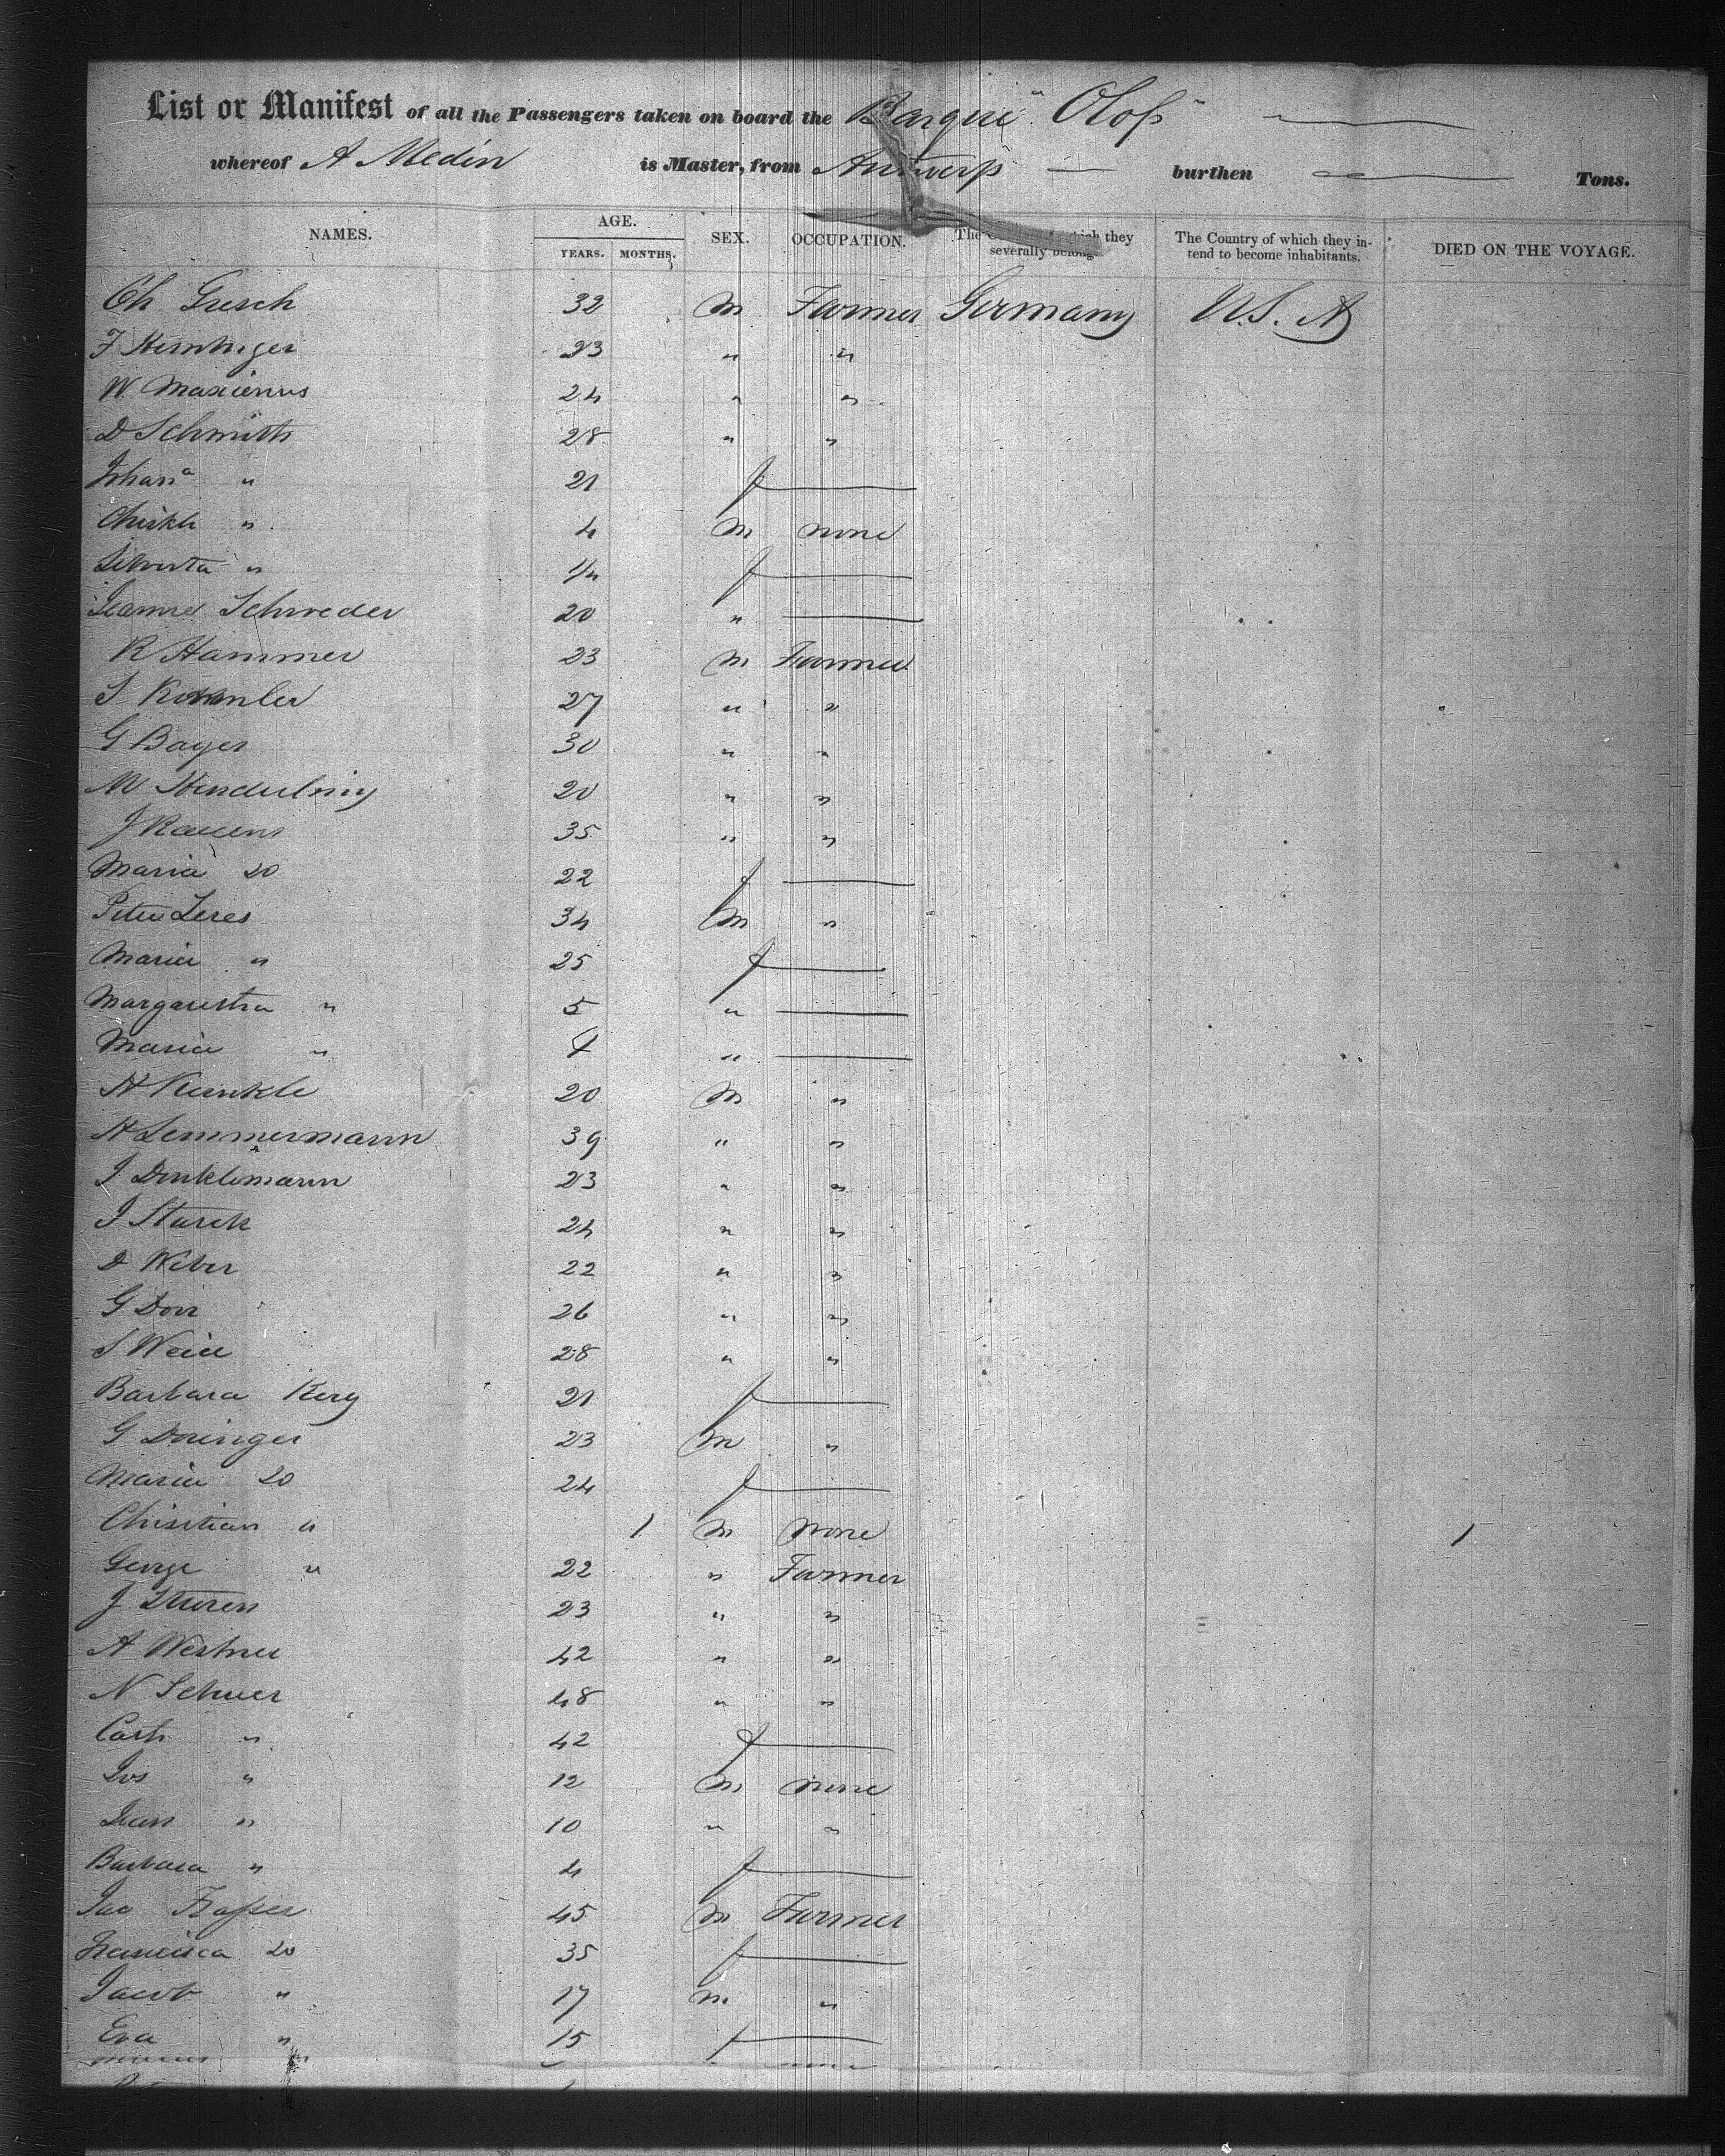 List or Manifest of all the Passengers taken on board the Barque "Olof"
whereof A Medin is Master, from Antwerp burthen Tons.
NAMES. AGE. YEARS. MONTHS. SEX. OCCUPATION. The which they severally belong The Country of which they intend to become inhabitants. DIED ON THE VOYAGE.
Ch Gresch 32 m Farmer Germany U.S.A
F 23 " "
W 24 " "
D Schmith 28 " "
Johanª " 21 f
" 4 m none
" f
Schreder 20 "
R Hammer 23 m Farmer
S 27 " "
G Bayer 30 " "
M 20 " "
J 35 " "
Maria do 22 f
Peter Leres 34 m "
Maria " 25 f
Margaretha " 5 "
Maria " "
H Kunkle 20 m "
H Lemmermann 39 " "
J Dinklemann 23 " "
J Starck 24 " "
D Weber 22 " "
G Dorr 26 " "
S 28 " "
Barbara Kerg 21 f
G Doringer 23 m "
Maria do 24 f
Christian " 1 m none 1
George " 22 " Farmer
J 23 " "
A Westner 42 " "
N Schuer 48 " "
Cath " 42 f
Jos " 12 m none
Jean " 10 " "
Barbara " 4 f
Jac 45 m Farmer
Francisca do 35 f
Jacob " 17 m "
Eva " 15 f